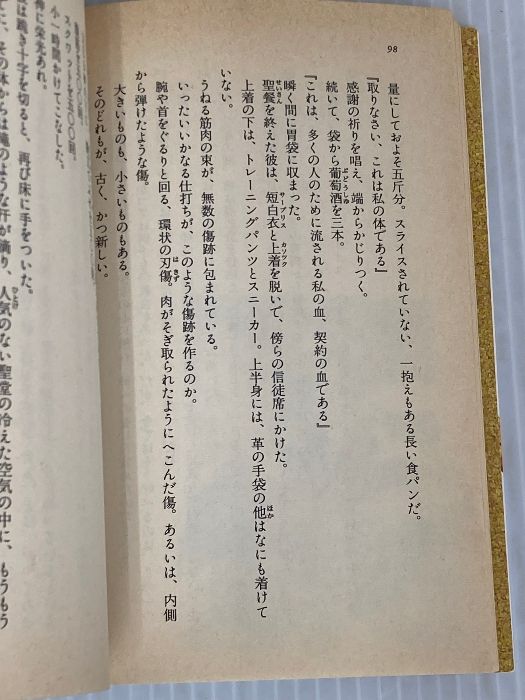 98
量にしておよそ五斤分。スライスされていない、一抱えもある長い食パンだ。
『取りなさい、これは私の体である』
感謝の祈りを唱え、端からかじりつく。
続いて、袋から葡萄酒を三本。
『これは、多くの人のために流される私の血、契約の血である』
瞬く間に胃袋に収まった。
聖餐を終えた彼は、短白衣と上着を脱いで、傍らの信徒席にかけた。
上着の下は、トレーニングパンツとスニーカー。上半身には、革の手袋の他はなにも着けて
いない。
うねる筋肉の束が、無数の傷跡に包まれている。
いったいいかなる仕打ちが、このような傷跡を作るのか。
腕や首をぐるりと回る、環状の刃傷。肉がそぎ取られたようにへこんだ傷。あるいは、内側
から弾けたような傷。
大きいものも、小さいものもある。
そのどれもが、古く、かつ新しい。
小一時間かけてこなした。
神に栄光あれ。
は跪き十字を切ると、再び床に手をついた。
に、その体からは滝のような汗が滴り、人気のない聖堂の冷えた空気の中に、もうもう